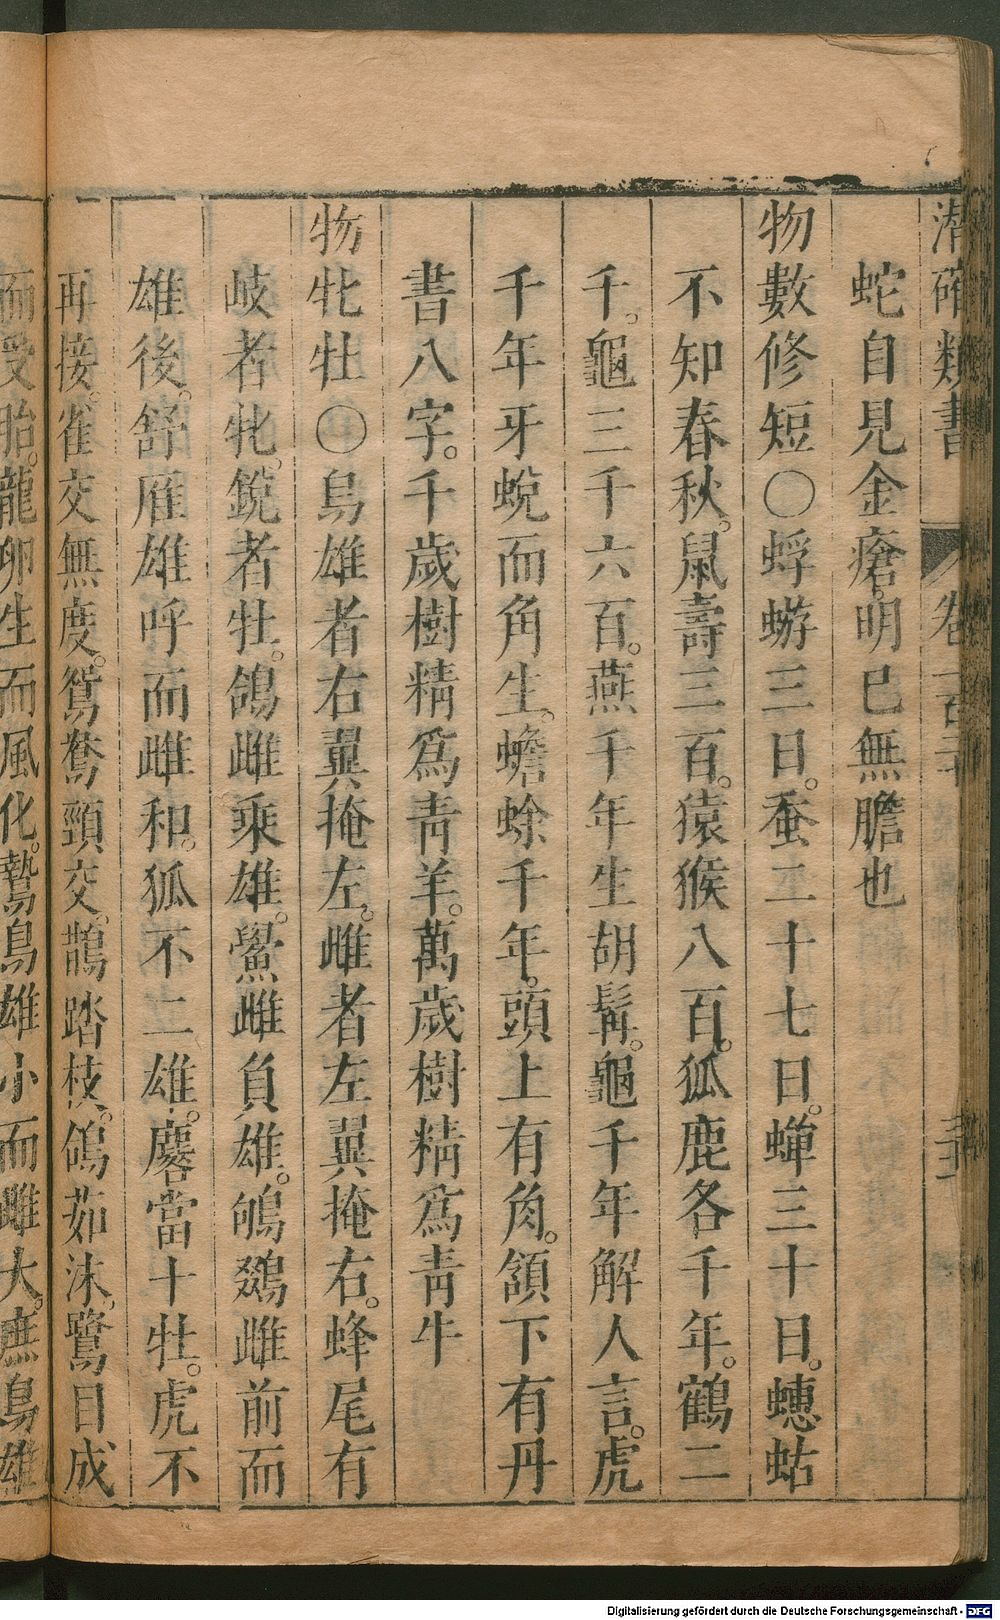 潛確類書 卷一百二十
蛇自見金瘡。明已無膽也
物數修短〇蜉蝣三日。蚕二十七日。蟬三十日。蟪蛄
不知春秋。鼠壽三百。猿猴八百。狐鹿各千年。鶴二
千。龜三千六百。燕千年生胡髯。龜千年解人言。虎
千年牙蛻而角生。蟾蜍千年。頭上有角。頷下有丹
書八字。千歲樹精爲靑羊。萬歲樹精爲靑牛
物牝牡〇鳥雄者右翼掩左。雌者左翼掩右。蜂尾有
岐者牝。銳者牡。鴿雌乘雄。鱟雌負雄。鵃鵽雌前而
雄後。舒雁雄呼而雌和。狐不二雄。麐當十牡。虎不
再接。雀交無度。鴛鴦頸交。鵲踏枝。鴿茹沫。鷺目成
而受胎。龍卵生而風化。鷙鳥雄小而雌大。庶鳥雄
Digitalisierung gefördert durch die Deutsche Forschungsgemeinschaft - DFG